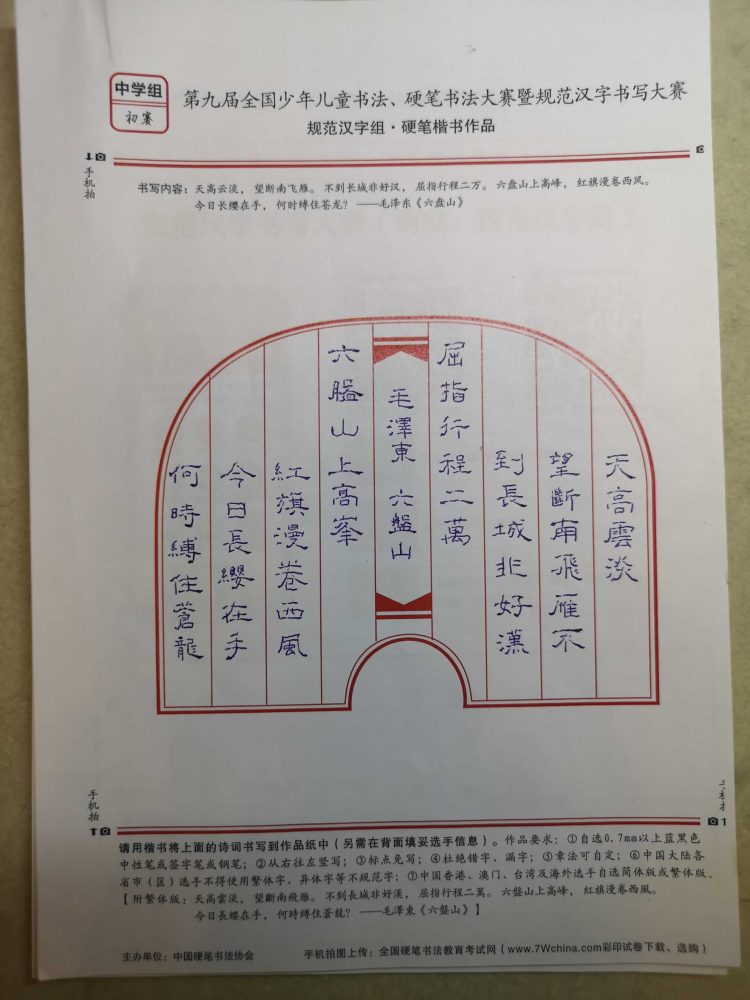 中学组
初赛
第九届全国少年儿童书法、硬笔书法大赛暨规范汉字书写大赛
规范汉字组·硬笔楷书作品
手机拍
书写内容：天高云淡，望断南飞雁。不到长城非好汉，屈指行程二万。六盘山上高峰，红旗漫卷西风。
今日长缨在手，何时缚住苍龙？——毛泽东《六盘山》
天高雲淡
望斷南飛雁不
到長城非好漢
屈指行程二萬
毛澤東 六盤山
六盤山上高峯
紅旗漫卷西風
今日長纓在手
何時縛住蒼龍
手机拍
请用楷书将上面的诗词书写到作品纸中（另需在背面填妥选手信息）。作品要求：①自选0.7mm以上蓝黑色
中性笔或签字笔或钢笔；②从右往左竖写；③标点免写；④杜绝错字、漏字；⑤章法可自定；⑥中国大陆各
省市（区）选手不得使用繁体字、异体字等不规范字；⑦中国香港、澳门、台湾及海外选手自选简体版或繁体版。
【附繁体版：天高雲淡，望斷南飛雁。不到長城非好漢，屈指行程二萬。六盤山上高峰，紅旗漫卷西風。
今日長纓在手，何時縛住蒼龍？——毛澤東《六盤山》】
主办单位：中国硬笔书法协会
手机拍图上传：全国硬笔书法教育考试网（www.7Wchina.com彩印试卷下载、选购）